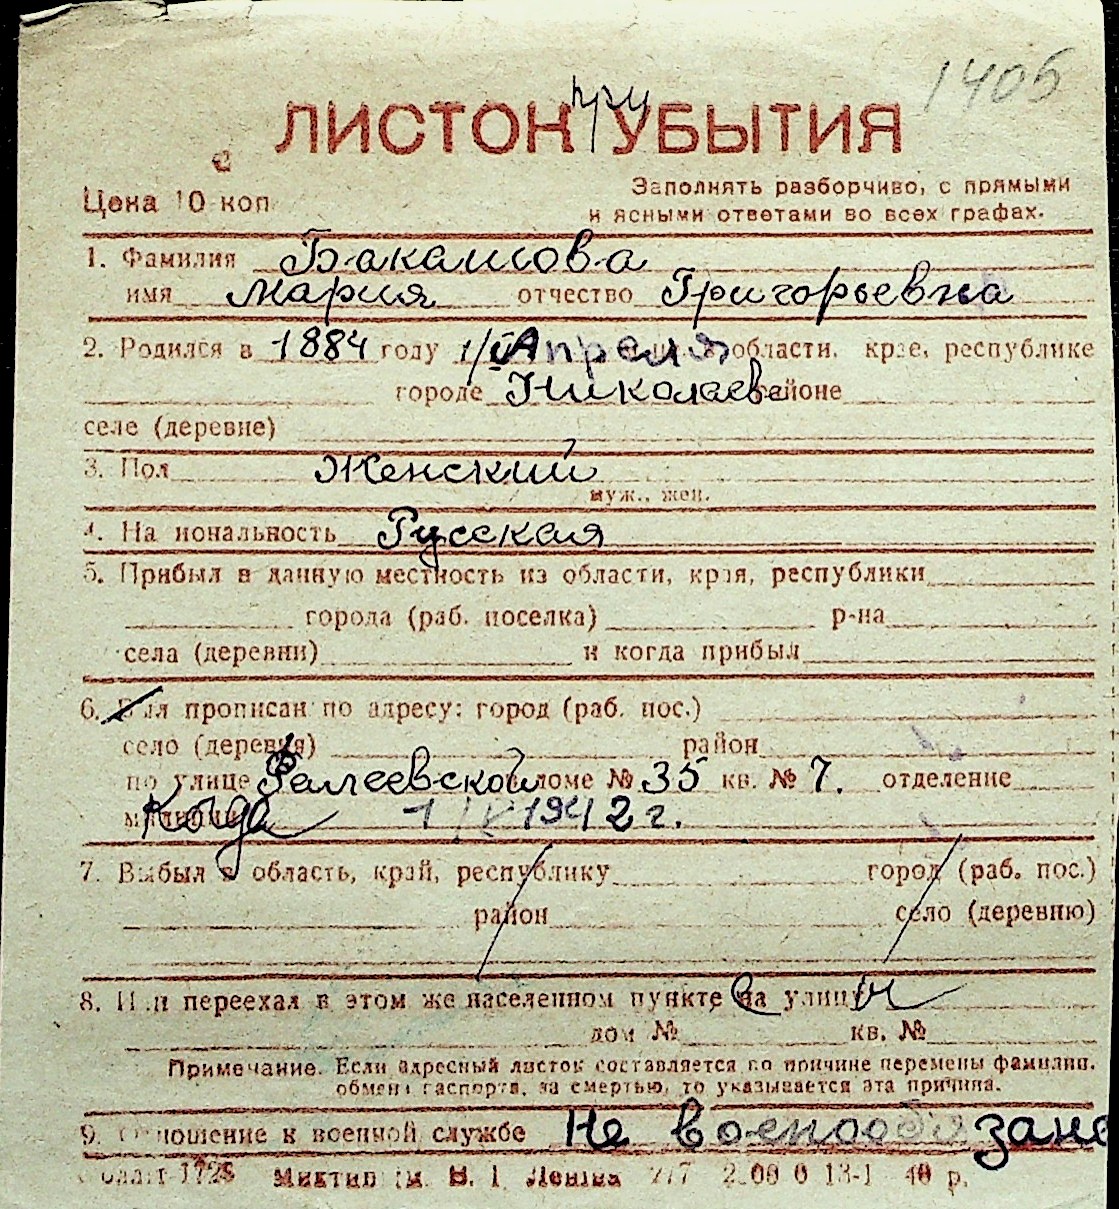 1406
ЛИСТОК при УБЫТИЯ
Цена 10 коп
Заполнять разборчиво, с прямыми
и ясными ответами во всех графах.
1. Фамилия Бакашова
имя Мария отчество Григорьевна
2. Родился в 1884 году 1/IV Апреля области, крае, республике
городе Николаеве районе
селе (деревне)
3. Пол Женский
муж., жен.
4. Национальность Русская
5. Прибыл в данную местность из области, края, республики
города (раб. поселка) р-на
села (деревни) и когда прибыл
6. Был прописан по адресу: город (раб. пос.)
село (деревня) район
по улице Фалеевской доме № 35 кв. № 7. отделение
милиции Когда 1/IV 1942 г.
7. Выбыл в область, край, республику город (раб. пос.)
район село (деревню)
8. Или переехал в этом же населенном пункте на улицу
дом № кв. №
Примечание. Если адресный листок составляется по причине перемены фамилии,
обмена паспорта, за смертью, то указывается эта причина.
9. Отношение к военной службе Не военнообязана
1728 им. В. І. Леніна 2/7 13-1 40 р.